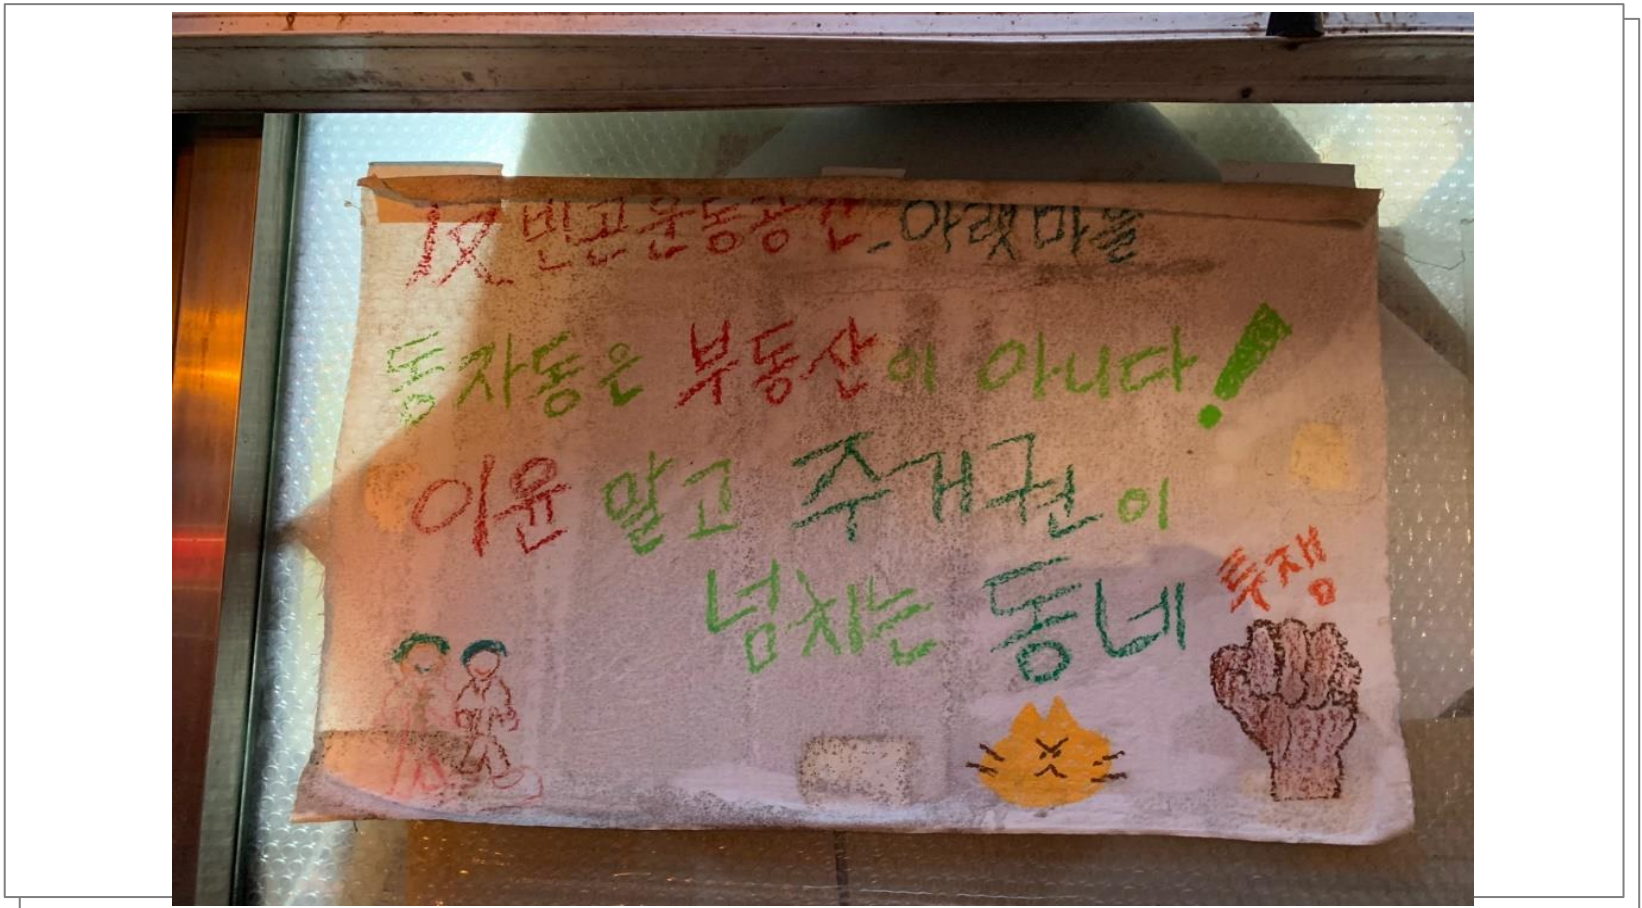 反빈곤운동공간_아랫마을
동자동은 부동산이 아니다!
이윤 말고 주거권이
넘치는 동네
투쟁